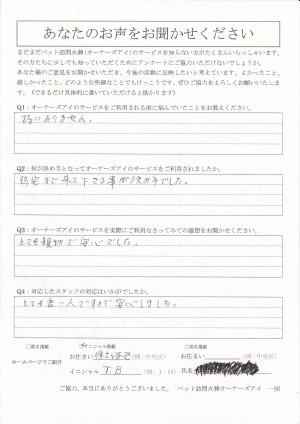 あなたのお声をお聞かせください
まだまだペット訪問火葬(オーナーズアイ)のサービスを知らない方がたくさんいらっしゃいます。
その方たちに少しでも知っていただくためにアンケートにご協力いただけないでしょうか。
あなた様のご意見をお聞かせいただき、今後の活動に反映したいと考えています。よかったこと、
嬉しかったこと、どのような些細なことでもけっこうです。ぜひご協力をよろしくお願いいたしま
す。(できるだけ具体的に書いていただけると助かります)
Q1:オーナーズアイのサービスをご利用される前に悩んでいたことをお教えください。
特にありません。
Q2:何が決め手となってオーナーズアイのサービスをご利用されましたか。
自宅まで来て下さる事が決め手でした。
Q3:オーナーズアイのサービスを実際にご利用なさってみての感想をお聞かせください。
とても親切で安心でした。
Q4:対応したスタッフの対応はいかがでしたか。
とても 人 安心しました。
□匿名掲載 イニシャル掲載 □実名掲載
ホームページでご紹介
お住まい (例:中央区) お住まい (例:中央区)
イニシャル J.B (例:J.H) 氏名
ご協力、本当にありがとうございました。 ペット訪問火葬オーナーズアイ 一同